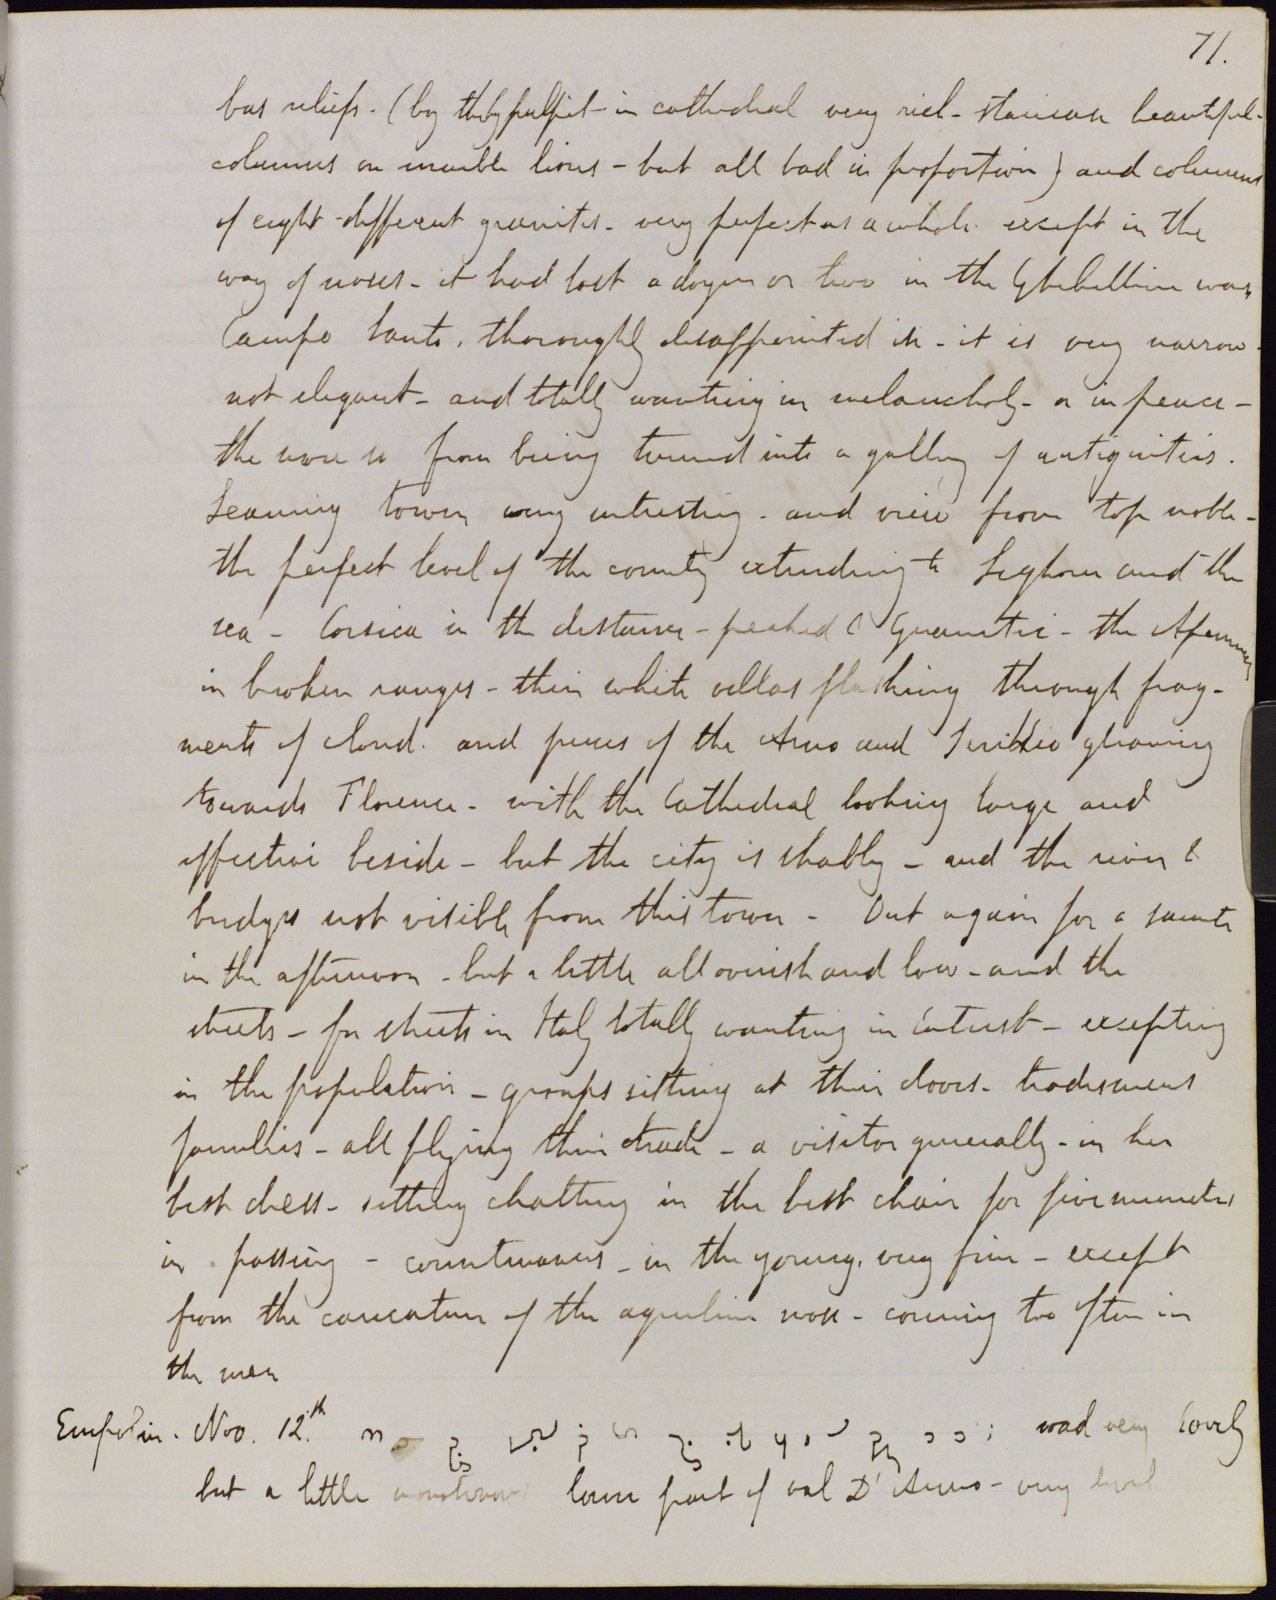 71.
bas reliefs. (by the by pulpit in cathedral very rich - staircase beautiful -
columns on marble lions - but all bad in proportion) and columns
of eight different granites - very perfect as a whole except in the
way of noses - it had lost a dozen or two in the Ghibelline wars
Campo Santo, thoroughly disappointed in - it is very narrow -
not elegant - and totally wanting in melancholy - or in peace -
the more so from being turned into a gallery of antiquities.
Leaning tower, very interesting - and view from top noble -
the perfect level of the country extending to Leghorn and the
sea - Corsica in the distance - peaked & - the Apennines
in broken ranges - their white villas flashing through frag-
ments of cloud. and pieces of the Arno and gleaming
towards Florence - with the Cathedral looking large and
effective beside - but the city is shabby - and the river &
bridges not visible from this tower - Out again for a saunter
in the afternoon - but a little alloverish and low - and the
streets - for streets in Italy totally wanting in interest - excepting
in the population - groups sitting at their doors - tradesmens
families - all plying their trade - a visitor generally - in her
best dress - sitting chatting in the best chair for five minutes
in passing - countenances - in the young, very fine - except
from the caricature of the aquiline nose - coming too often in
the men
Nov. 12.th road very lovely
but a little monotonous lower part of val D'Arno - very level